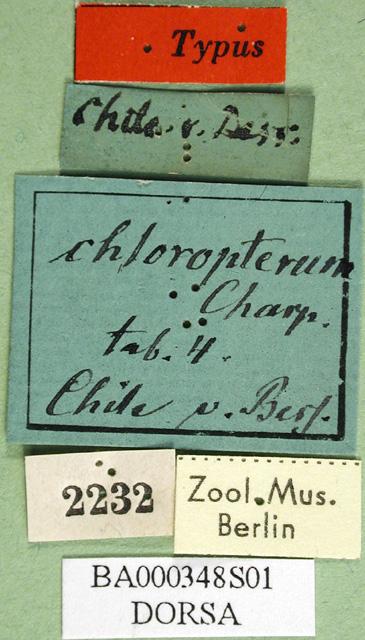 Typus
Chile v. Bess.
chloropterum
Charp.
tab. 4.
Chile v. Bess.
2232
Zool. Mus.
Berlin
BA000348S01
DORSA